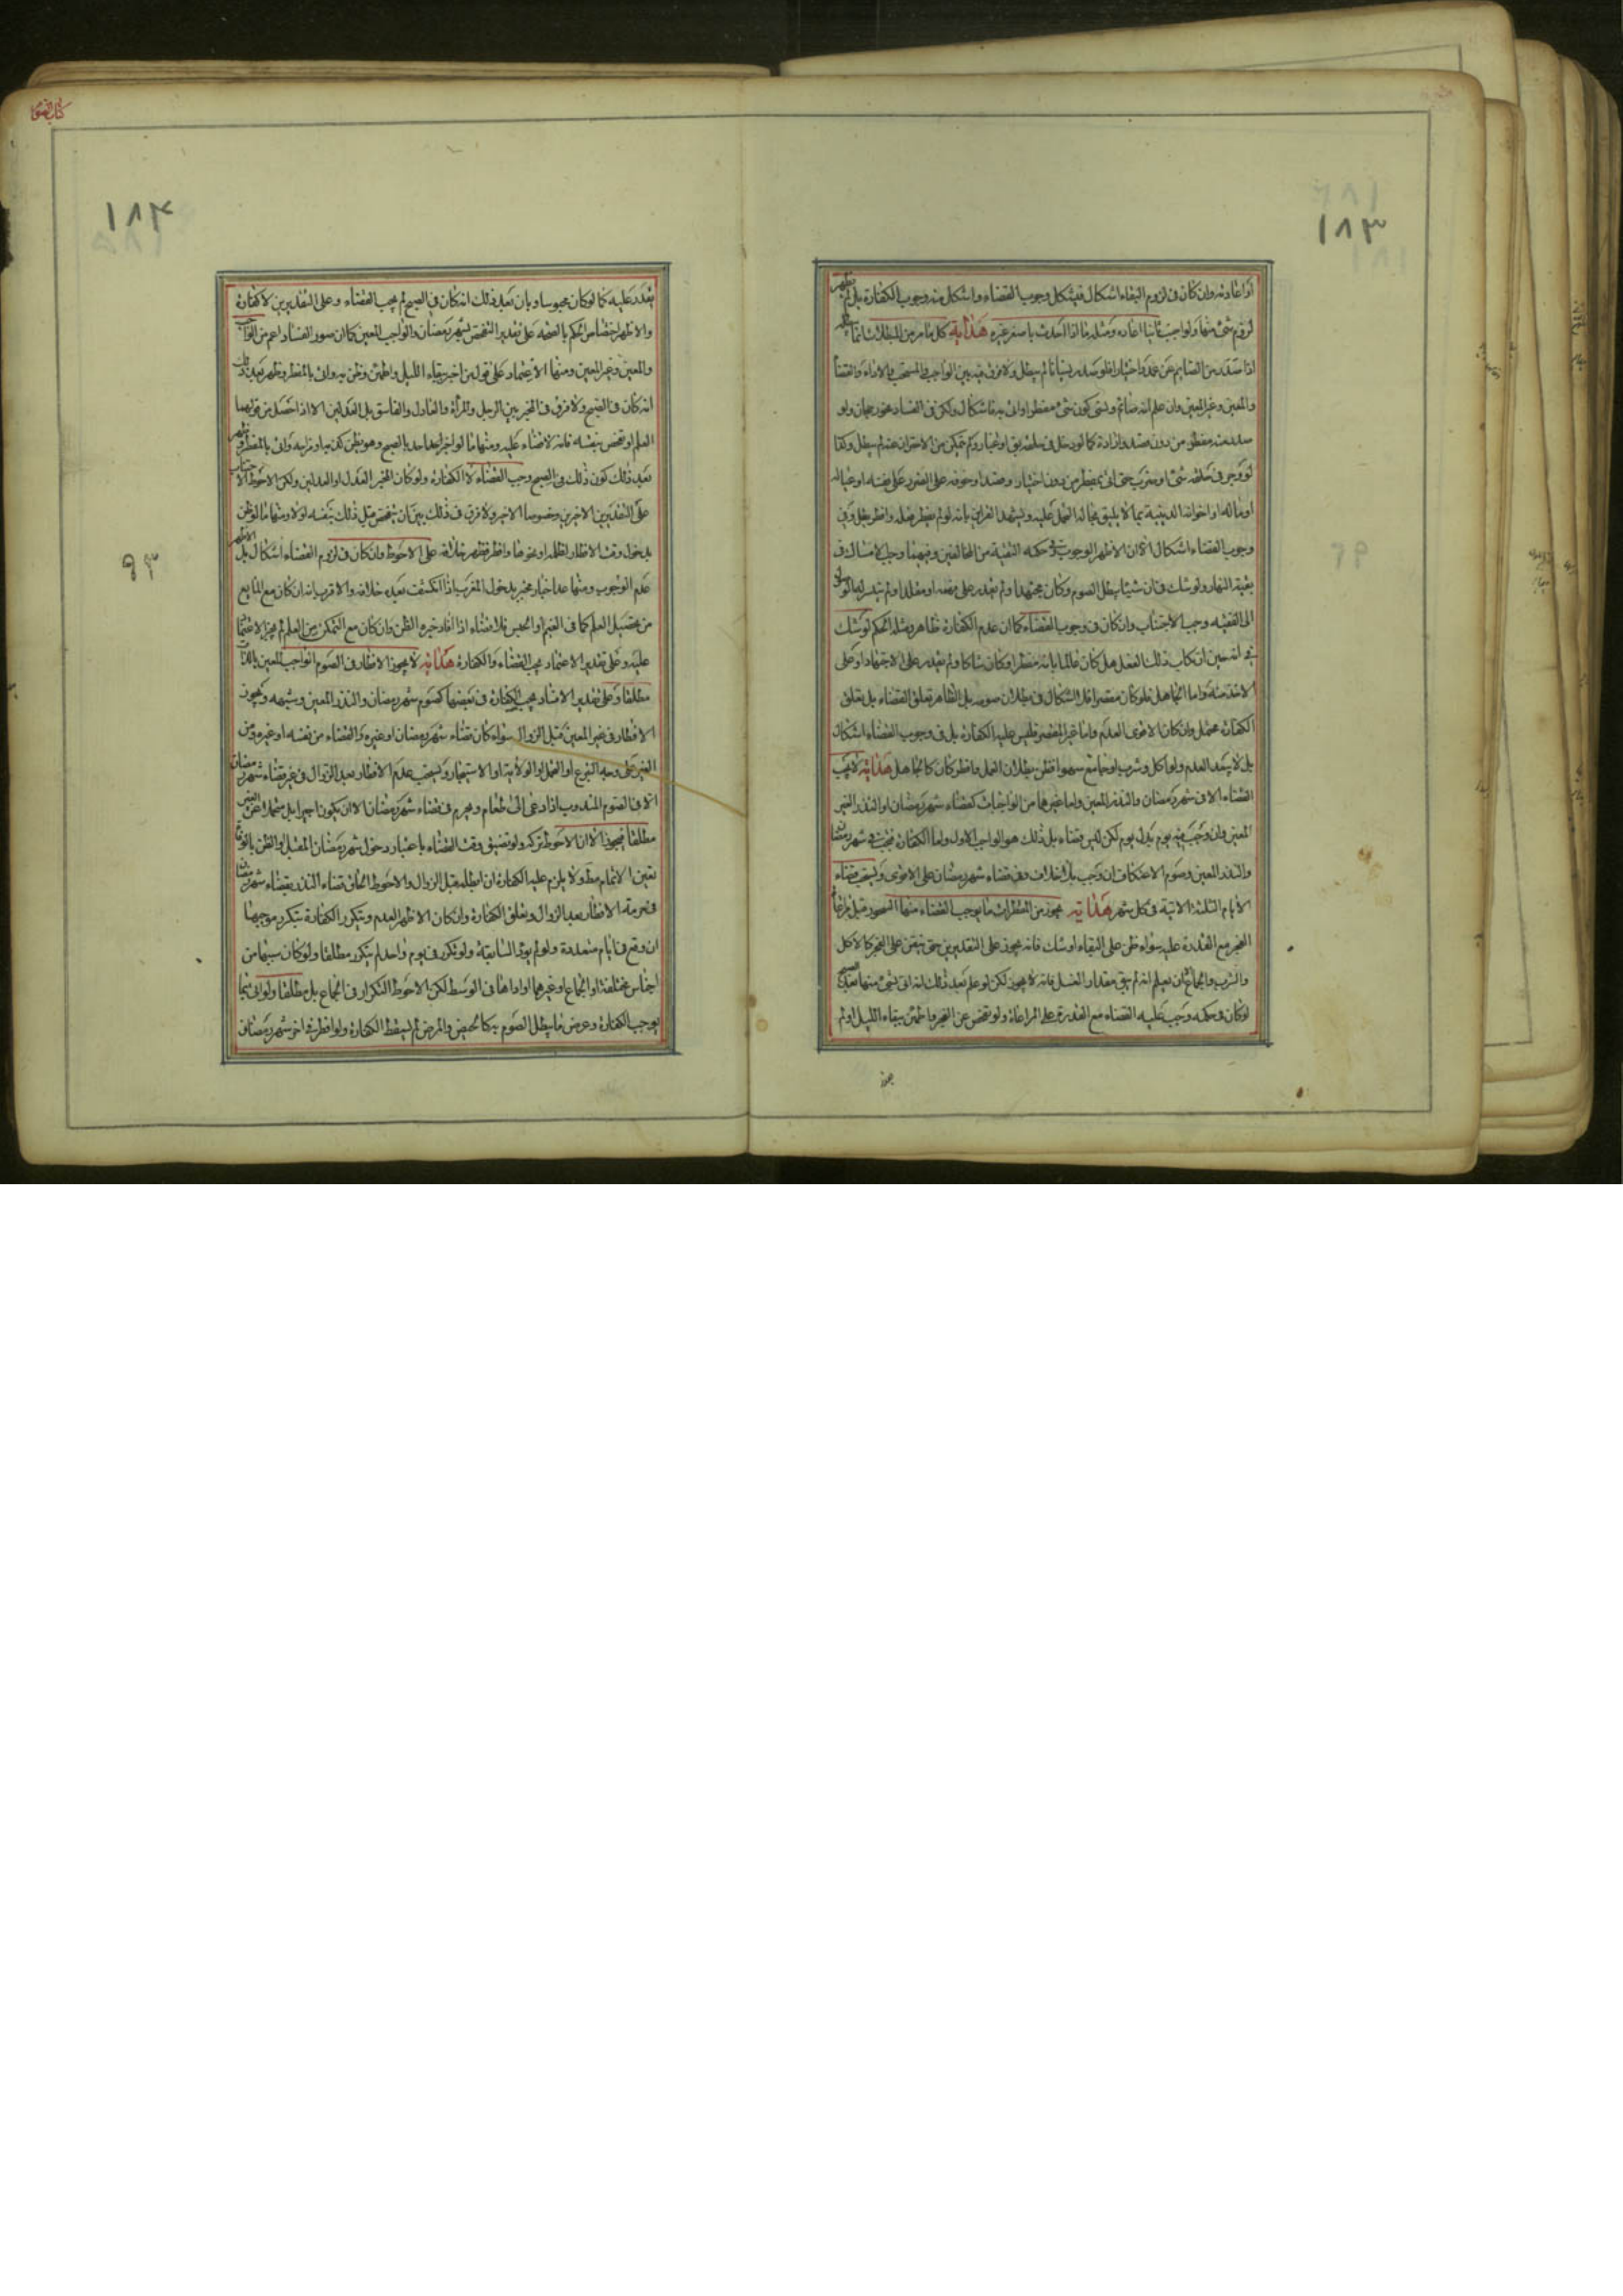 ١٨٣
اذا عاد منه وان كان فى لزوم البقاء اشكال فيشكل وجوب القضاء واشكل منه وجوب الكفارة بل لم يظهر
لزوم شئ منها ولو اجنب ثانيا اعاده ومثله ما اذا احدث باصغر غيره هداية كل ما مر من المبطلات انما
اذا صدر من الصايم عن عمد واختيار فلو صدر نسيانا لم يبطل ولا فرق فيه بين الواجب والمستحب والاداء والقضا
والمعين وغير المعين وان علم انه صائم ونسى كون شئ مفطرا واتى به فاشكال ولكن الفساد ولو
صدر منه مفطر من دون قصد وارادة كما لو دخل فى حلقه بق او غبار ولم يتمكن من الاحتراز عنه لم يبطل وكذا
لو وجر فى حلقه شئ او ضرب حتى اتى بمفطر من دون اختيار وقصد او خوفه على الضرر على نفسه او عياله
او ماله او اخوانه الدينية بما لا يليق بحاله التحمل عليه ويشهد القراين بانه لو لم يفطر فعله وافطر بطل وفى
وجوب القضاء اشكال الا ان الاظهر الوجوب فى حكمه التقية من المخالفين وفيهما وجب الامساك فى
بقية النهار ولو شك فى ان شيئا يبطل الصوم وكان مجتهدا ولم يقدر على او مقلدا ولم يتيسر له
الى الفقيه وجب الاجتناب وان كان فى وجوب القضاء كما ان عدم الكفارة ظاهر ومثله الحكم لو شك
فى انه حين ارتكاب ذلك الفعل هل كان عالما بانه مفطر او كان شاكا ولم يقدر على الاجتهاد او على
الاخذ منه واما الجاهل فلو كان مقصرا فلا اشكال فى بطلان صومه بل الظاهر تعلق القضاء بل تعلق
الكفارة محتمل وان كان الاقوى العدم واما غير المقصر فليس عليه الكفارة بل فى وجوب القضاء اشكال
بل لا يبعد العدم ولو اكل وشرب او جامع سهوا فظن بطلان العمل وافطر كان كالجاهل هداية لا يجب
القضاء الا فى شهر رمضان والنذر المعين واما غيرها من الواجبات كقضاء شهر رمضان او النذر الغير
المعين وان وجب فيه يوم بدل يوم لكن ليس قضاء بل ذلك هو الواجب الاول واما الكفارة فتجب فى شهر رمضان
والنذر المعين وصوم الاعتكاف ان وجب بل وفى قضاء شهر رمضان على الاقوى ويستحب قضاء
الايام الثلثة الاتية فى كل شهر هداية يجوز من المفطرات ما يوجب القضاء منها التصور قبل مراعاة
الفجر مع القدرة عليه سواء ظن على البقاء او شك فانه يجوز على التقديرين حتى يتيقن على الفجر كالاكل
والشرب والجماع الا ان يعلم انه لم يبق مقدار الغسل فانه لا يجوز لكن لو علم بعد ذلك انه اتى لشئ منها
لو كان فى حكمه وجب عليه القضاء مع القدرة على المراعاة ولو تفحص عن الفجر واطمئن ببقاء الليل او لم
كتاب الصوم
١٨٤
٩٣
يقدر عليه كما لو كان محبوسا وبان بعد ذلك انه كان فى الصبح لم يجب القضاء وعلى التقديرين لا كفارة
والاظهر اختصاص الحكم بالصحة على تقدير التفحص بشهر رمضان والواجب المعين كما ان صور الفساد اعم من الواجب
والمعين وغير المعين ومنها الاعتماد على قول من اخبر ببقاء الليل واطمئن وظن به واتى بالمفطر وظهر بعد ذلك
انه كان فى الصبح ولا فرق فى المخبر بين الرجل والمرأة والعادل والفاسق بل العدلين الا اذا حصل من قولهما
العلم او تفحص بنفسه فانه لا قضاء عليه ومنها ما لو اخبر احد بالصبح وهو يظن كذبه او مزاحه واتى بالمفطر وظهر
بعد ذلك كون ذلك فى الصبح وجب القضاء لا الكفارة ولو كان المخبر العدل او العدلين ولكن الاحوط الاجتناب
على التقديرين الاخيرين وخصوصا الاخير ولا فرق فى ذلك بين ان يتفحص مثل ذلك بنفسه او لا ومنها ما لو ظن
بدخول وقت الافطار لظلمة او نحوها وافطر فظهر خلافه على الاحوط وان كان فى لزوم القضاء اشكال بل الاظهر
عدم الوجوب ومنها عدا اخبار مخبر بدخول المغرب اذا انكشف بعده خلافه والاقرب انه ان كان مع المانع
من تحصيل العلم كما فى الغيم او الحبس فلا قضاء اذا افاد خبره الظن وان كان مع التمكن من العلم لم يجز الاعتماد
عليه وعلى تقدير الاعتماد يجب القضاء والكفارة هداية لا يجوز الافطار فى الصوم الواجب المعين بالذات
مطلقا وعلى تقدير الافساد يجب الكفارة فى بعضها كصوم شهر رمضان والنذر المعين وشبهه ويجوز
الافطار فى غير المعين قبل الزوال سواء كان قضاء شهر رمضان او غيره والقضاء من نفسه او غيره ومن
الغير على وجه التبرع او التحمل او الولاية او الاستيجار ويستحب عدم الافطار بعد الزوال فى غير قضاء شهر رمضان
الا فى الصوم المندوب اذا دعى الى طعام ويحرم فى قضاء شهر رمضان الا ان يكون اجيرا بل متحملا عن الغير
مطلقا فيجوز الا ان الاحوط تركه ولو تضيق وقت القضاء باعتبار دخول شهر رمضان المقبل او الظن بالوفاة
تعين الاتمام مط ولا يلزم عليه الكفارة ان ابطله قبل الزوال والاحوط الحاق قضاء النذر بقضاء شهر رمضان
فى حرمة الافطار بعد الزوال وتعلق الكفارة وان كان الاظهر العدم ويتكرر الكفارة بتكرر موجبها
ان وقع فى ايام متعددة ولو لم يؤد السابقة ولو تكرر فى يوم واحد لم يتكرر مطلقا ولو كان سببها من
اجناس مختلفة او الجماع او غيرهما او اداها فى الوسط لكن الاحوط التكرار فى الجماع بل مطلقا ولو اتى بما
يوجب الكفارة وعرض ما يبطل الصوم به كالحيض والمرض لم يسقط الكفارة ولو افطر فى اخر شهر رمضان